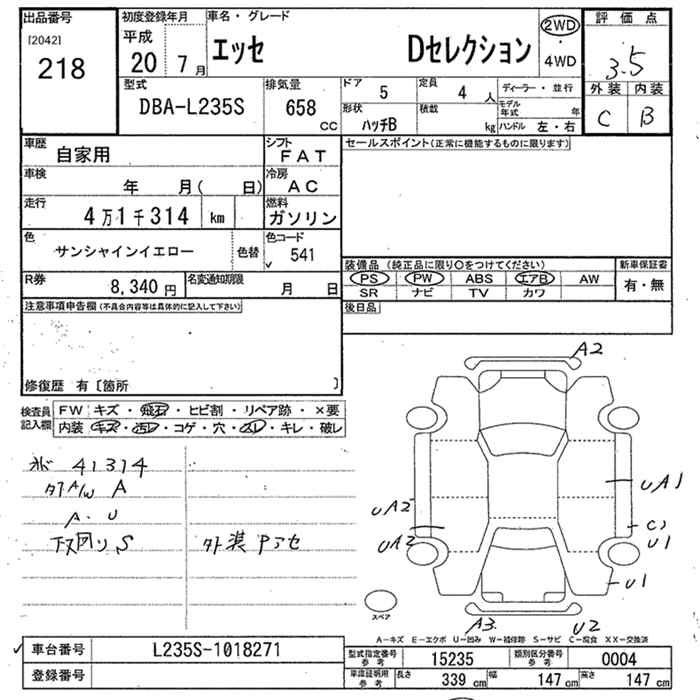 出品番号
[2042]
218
初度登録年月
平成
20 7月
車名・グレード
エッセ Dセレクション
2WD
・
4WD
評価点
3.5
外装 内装
C B
型式
DBA-L235S
排気量
658
CC
ドア 5
定員 4 人
ディーラー・並行
形状 ハッチB
積載 kg
モデル年式 年
ハンドル 左・右
車歴
自家用
シフト
FAT
車検
年 月( 日)
冷房
AC
走行
4万1千314 km
燃料
ガソリン
色
サンシャインイエロー
色替
色コード
541
R券
8,340円
名変通知期限
月 日
セールスポイント(正常に機能するものに限ります)
装備品 (純正品に限り○をつけてください)
PS PW ABS エアB AW
SR ナビ TV カワ
新車保証書
有・無
後日品
注意事項申告欄(不具合内容等は具体的に記入して下さい)
修復歴 有〔箇所 〕
検査員
記入欄
FW キズ・飛石・ヒビ割・リペア跡・×要
内装 キズ・汚レ・コゲ・穴・スレ・キレ・破レ
41314
A/W A
A・U
下回リ S
外装 Pアセ
A2
UA1
UA2
UA2
C
U1
U1
A3
U2
スペア
A-キズ E-エクボ U-凹み W-補修跡 S-サビ C-腐食 XX-交換済
車台番号
L235S-1018271
登録番号
型式指定番号
参考
15235
類別区分番号
参考
0004
車庫証明用
参考
長さ 339 cm 幅 147 cm 高さ 147 cm